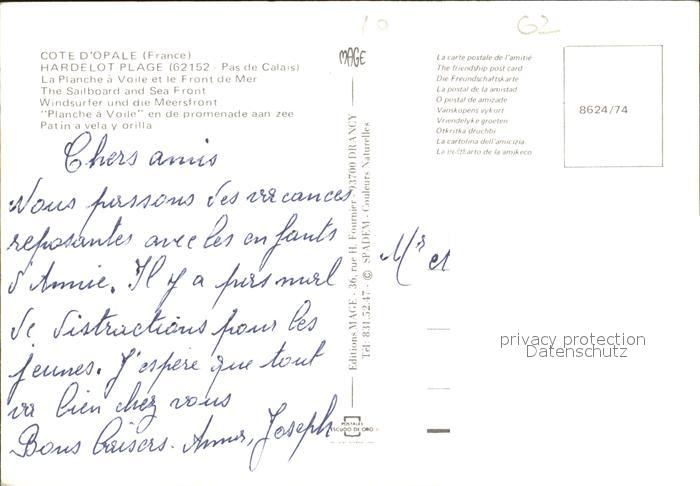 10
62
COTE D'OPALE (France)
HARDELOT PLAGE (62152 - Pas de Calais)
La Planche à Voile et le Front de Mer
The Sailboard and Sea Front
Windsurfer und die Meersfront
"Planche à Voile" en de promenade aan zee
Patin a vela y orilla
Chers amis
Nous passons des vacances
reposantes avec les enfants
d'Annie. Il y a pas mal
de distractions pour les
jeunes. J'espère que tout
va bien chez vous
Bons baisers. Anna, Joseph
MAGE
Editions MAGE - 36, rue H. Fournier - 93700 DRANCY
Tél: 831.52.47 - © SPADEM - Couleurs Naturelles
POSTALES
ESCUDO DE ORO
La carte postale de l'amitié
The friendship post card
Die Freundschaftskarte
La postal de la amistad
O postal de amizade
Vanskopens vykort
Vriendelyke groeten
Otkritka druchbi
La cartolina dell'amicizia
La postkarto de la amikeco
8624/74
Mr et
privacy protection
Datenschutz